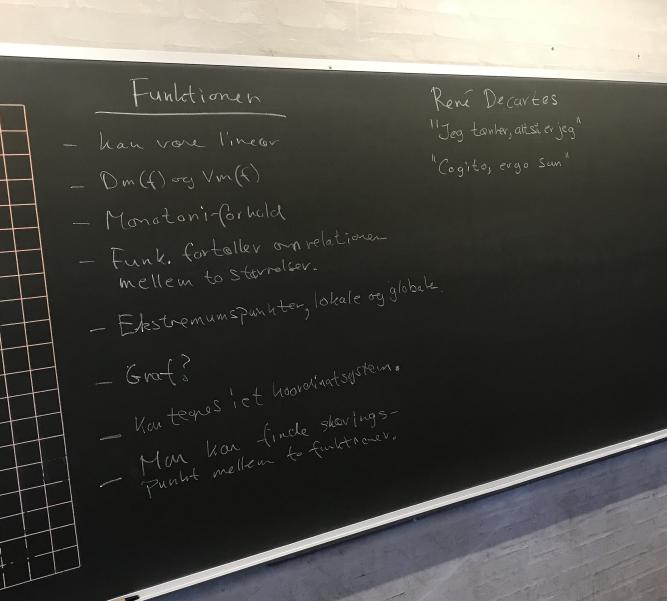 Funktionen
- kan være lineær
- Dm(f) og Vm(f)
- Monotoni-forhold
- Funk. fortæller om relationen
mellem to størrelser.
- Ekstremumspunkter, lokale og globale.
- Graf?
- Kan tegnes i et koordinatsystem.
- Man kan finde skærings-
punkt mellem to funktioner.
René Decartes
"Jeg tænker, altså er jeg"
"Cogito, ergo sun"